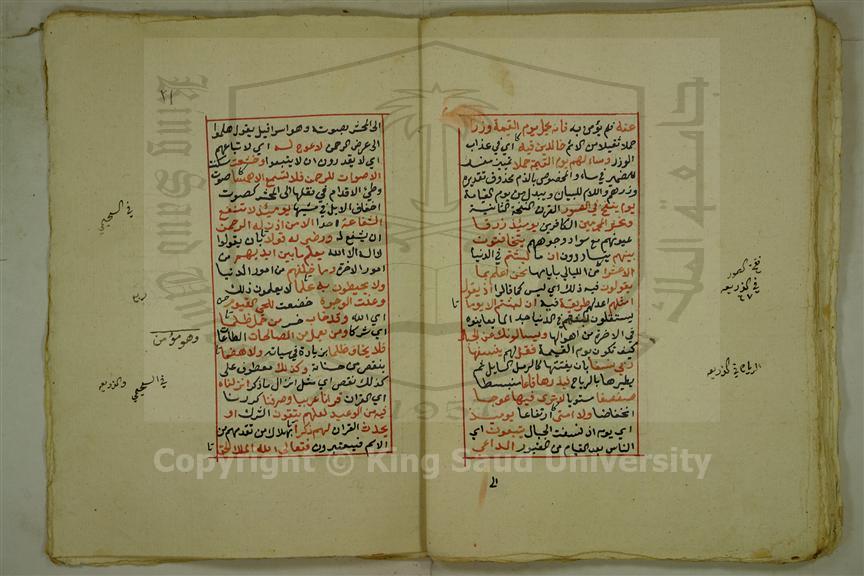 عنه فلم يؤمن به فانه يحمل يوم القيمة وزرا
حملا ثقيلا من الاثم خالدين فيه اي في عذاب
الوزر وساء لهم يوم القيمة حملا تمييز مفسر
للضمير في ساء والمخصوص بالذم محذوف تقديره
وزرهم واللام للبيان ويبدل من يوم القيامة
يوم ينفخ في الصور القرن النفخة الثانية
ونحشر المجرمين الكافرين يومئذ زرقا
عيونهم مع سواد وجوههم يتخافتون
بينهم يتساررون ان ما لبثتم في الدنيا
الا عشرا من الليالي بايامها نحن اعلم بما
يقولون في ذلك اي ليس كما قالوا اذ يقول
امثلهم اعدلهم طريقة فيه ان لبثتم الا يوما
يستقلون لبثهم في الدنيا جدا لما يعاينوه
في الاخرة من اهوالها ويسالونك عن الجبال
كيف تكون يوم القيمة فقل لهم ينسفها
ربي نسفا بان يفتتها كالرمل السائل ثم
يطيرها بالرياح فيذرها قاعا منبسطا
صفصفا مستويا لا ترى فيها عوجا
انخفاضا ولا امتا ارتفاعا يومئذ
اي يوم اذ نسفت الجبال يتبعون اي
الناس بعد القيام من القبور الداعي
الى
في الصور
الرياح
٢١
الى المحشر بصوته وهو اسرافيل يقول هلموا
الى عرض الرحمن لا عوج له اي لاتباعهم
اي لا يقدرون ان لا يتبعوا وخشعت سكنت
الاصوات للرحمن فلا تسمع الا همسا صوت
وطئ الاقدام في نقلها الى المحشر كصوت
اخفاف الابل في مشيها يومئذ لا تنفع
الشفاعة احدا الا من اذن له الرحمن
ان يشفع له ورضي له قولا بان يقولوا
لا اله الا الله يعلم ما بين ايديهم من
امور الاخرة وما خلفهم من امور الدنيا
ولا يحيطون به علما لا يعلمون ذلك
وعنت الوجوه خضعت للحي القيوم
اي الله وقد خاب خسر من حمل ظلما
اي شركا ومن يعمل من الصالحات الطاعات
فلا يخاف ظلما بزيادة في سياته ولا هضما
بنقص من حسناته وكذلك معطوف على
كذلك نقص اي مثل انزال ما ذكر انزلناه
اي القران قرانا عربيا وصرفنا كررنا
فيه من الوعيد لعلهم يتقون الشرك او
يحدث القران لهم ذكرا بهلاك من تقدمهم من
الامم فيعتبرون فتعالى الله الملك الحق
وهو مؤمن
جامعة الملك
King Saud University
1957
Copyright © King Saud University